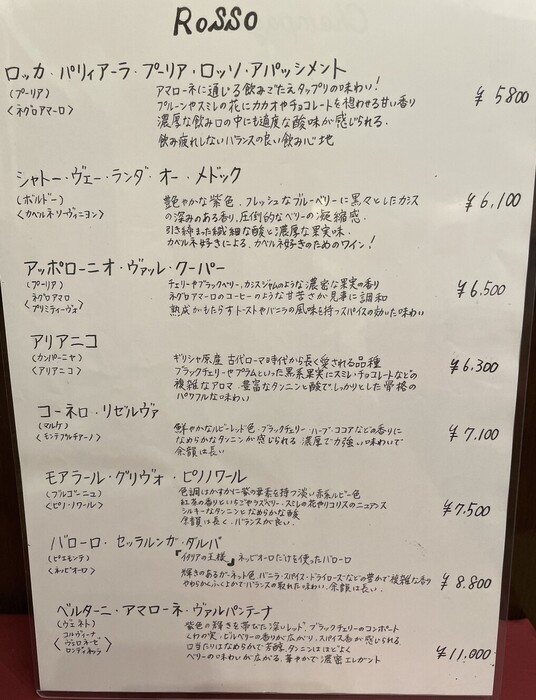 ROSSO
ロッカ・パリィアーラ・プーリア・ロッソ・アパッシメント
(プーリア)
<ネグロアマーロ>
アマローネに通じる飲みごたえタップリの味わい!
プルーンやスミレの花にカカオやチョコレートを想わせる甘い香り
濃厚な飲み口の中にも適度な酸味が感じられる.
飲み疲れしないバランスの良い飲み心地
¥5800
シャトー・ヴェー・ランダ・オー・メドック
(ボルドー)
<カベルネソーヴィニヨン>
艶やかな紫色.フレッシュなブルーベリーに黒々としたカシス
の深みのある香り.圧倒的なベリーの凝縮感.
引き締まった繊細な酸と濃厚な果実味.
カベルネ好きによる、カベルネ好きのためのワイン!
¥6,100
アッポローニオ・ヴァッル・クーパー
(プーリア)
ネグロアマロ
<プリミティーヴォ>
チェリーやブラックベリー、カシスジャムのような濃密な果実の香り
ネグロアマーロのコーヒーのような甘苦さが見事に調和
熟成がもたらすトーストやバニラの風味を持つスパイスの効いた味わい
¥6,500
アリアニコ
(カンパーニャ)
<アリアニコ>
ギリシャ原産 古代ローマ時代から長く愛される品種
ブラックチェリーやプラムといった黒系果実にスミレ・チョコレートなどの
複雑なアロマ 豊富なタンニンと酸でしっかりとした骨格の
パワフルな味わい
¥6,300
コーネロ・リゼルヴァ
(マルケ)
<モンテプルチアーノ>
鮮やかなルビーレッド色.ブラックチェリー・ハーブ・ココアなどの香りに
なめらかなタンニンが感じられる 濃厚で力強い味わいで
余韻は長い
¥7,100
モアラール・グリヴォ・ピノノワール
(ブルゴーニュ)
<ピノ・ノワール>
色調はかすかに紫の要素を持つ淡い赤系ルビー色
紅茶の香りといちごやラズベリー・スミレの花やリコリスのニュアンス
シルキーなタンニンとなめらかな酸
余韻は長く、バランスが良い.
¥7,500
バローロ・セッラルンガ・ダルバ
(ピエモンテ)
<ネッビオーロ>
『イタリアの王様』ネッビオーロだけを使ったバローロ
輝きのあるガーネット色 バニラ・スパイス・ドライローズなどの豊かで複雑な香り
やわらかくふくよかでバランスの取れた味わい.余韻は長い.
¥8.800
ベルターニ・アマローネ・ヴァルパンテーナ
(ヴェネト)
コルヴィーナ
ヴェロネーゼ
ロンディネッラ
紫色の輝きを帯びた深いレッド、ブラックチェリーのコンポート
くわの実、ビルベリーの香りが広がり、スパイス香が感じられる
口当たりはなめらかで芳醇、タンニンはほどよく
ベリーの味わいが広がる、華やかで濃密エレガント
¥11,000